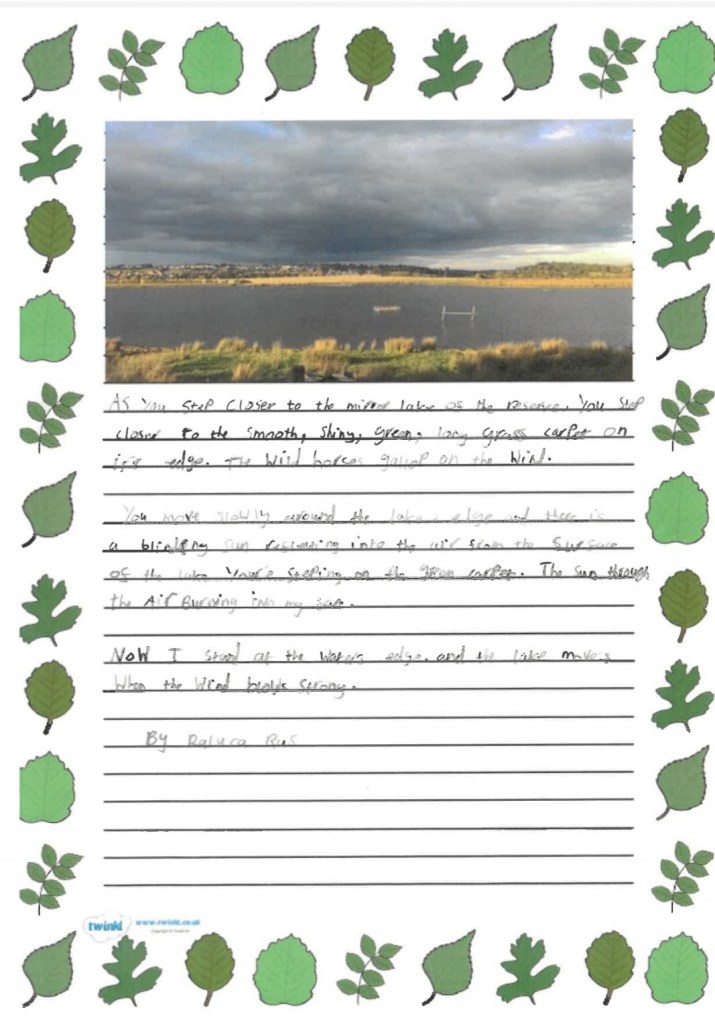 As You Step closer to the mirror lake of the reserve. You Step
closer to the smooth, shiny, green, long grass carpet on
it's edge. The Wind horses gallop on the Wind.
You move slowly around the lake's edge and there is
a blinding sun into the air from the Surface
of the lake You're Steping on the green carpet. The Sun through
the Air Burning into my
NOW I stand at the waters edge. and the lake moves
When the Wind blows Strong.
By Raluca Rus
twinkl www.twinkl.co.uk